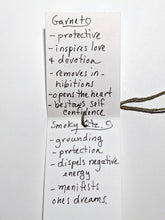 Garnet
- protective
- inspires love
& devotion
- removes in-
hibitions
- opens the heart
- bestows self
confidence
Smoky Qtz.
- grounding
- protection
- dispels negative
energy
- manifists
ones dreams.